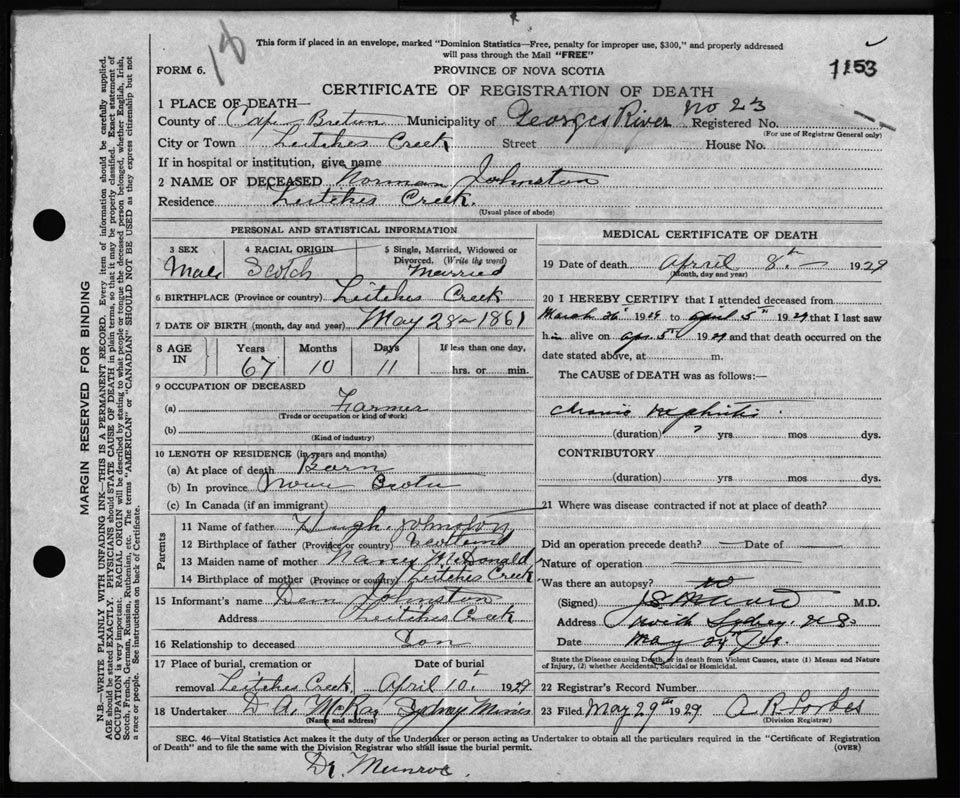 18
This form if placed in an envelope, marked "Dominion Statistics—Free, penalty for improper use, $300," and properly addressed
will pass through the Mail "FREE"
FORM 6.
PROVINCE OF NOVA SCOTIA
1153
CERTIFICATE OF REGISTRATION OF DEATH
1 PLACE OF DEATH—
County of Cape Breton Municipality of Georges River No 23 Registered No.
(For use of Registrar General only)
City or Town Leitches Creek Street House No.
If in hospital or institution, give name
2 NAME OF DECEASED Norman Johnston
Residence Leitches Creek.
(Usual place of abode)
PERSONAL AND STATISTICAL INFORMATION
3 SEX 4 RACIAL ORIGIN 5 Single, Married, Widowed or
Divorced. (Write the word)
Male Scotch Married
6 BIRTHPLACE (Province or country) Leitches Creek
7 DATE OF BIRTH (month, day and year) May 28 1861
8 AGE IN Years Months Days If less than one day,
67 10 11 hrs. or min.
9 OCCUPATION OF DECEASED
(a) Farmer
(Trade or occupation or kind of work)
(b)
(Kind of industry)
10 LENGTH OF RESIDENCE (in years and months)
(a) At place of death Born
(b) In province Nova Scotia
(c) In Canada (if an immigrant)
Parents
11 Name of father Hugh Johnston
12 Birthplace of father (Province or country) Scotland
13 Maiden name of mother Nancy McDonald
14 Birthplace of mother (Province or country) Leitches Creek
15 Informant's name Dan Johnston
Address Leitches Creek
16 Relationship to deceased Son
17 Place of burial, cremation or Date of burial
removal Leitches Creek April 10 1929
18 Undertaker D A. McKay Sydney Mines
(Name and address)
MEDICAL CERTIFICATE OF DEATH
19 Date of death April 8th 1929
(Month, day and year)
20 I HEREBY CERTIFY that I attended deceased from
March 26 1929 to April 5th 1929 that I last saw
him alive on Apr. 5th 1929 and that death occurred on the
date stated above, at m.
The CAUSE of DEATH was as follows:—
Chronic Nephritis
(duration) ? yrs mos dys.
CONTRIBUTORY
(duration) yrs mos dys.
21 Where was disease contracted if not at place of death?
Did an operation precede death? — Date of —
Nature of operation
Was there an autopsy? no
(Signed) M.D.
Address North Sydney. N S.
Date May 29th
State the Disease causing Death, or in death from Violent Causes, state (1) Means and Nature
of Injury, (2) whether Accidental, Suicidal or Homicidal.
22 Registrar's Record Number
23 Filed May 29th 1929 A R Forbes
(Division Registrar)
SEC. 46—Vital Statistics Act makes it the duty of the Undertaker or person acting as Undertaker to obtain all the particulars required in the "Certificate of Registration
of Death" and to file the same with the Division Registrar who shall issue the burial permit.
(OVER)
Dr. Munroe.
MARGIN RESERVED FOR BINDING
N.B.—WRITE PLAINLY WITH UNFADING INK—THIS IS A PERMANENT RECORD. Every item of information should be carefully supplied.
AGE should be stated EXACTLY. PHYSICIANS should STATE CAUSE OF DEATH in plain terms, so that it may be properly classified. Exact statement of
OCCUPATION is very important. RACIAL ORIGIN will be described by stating to what people or tongue the deceased person belonged, whether English, Irish,
Scotch, French, German, Russian, Ruthenian, etc. The terms "AMERICAN" or "CANADIAN" SHOULD NOT BE USED as they express citizenship but not
a race or people. See instructions on back of Certificate.